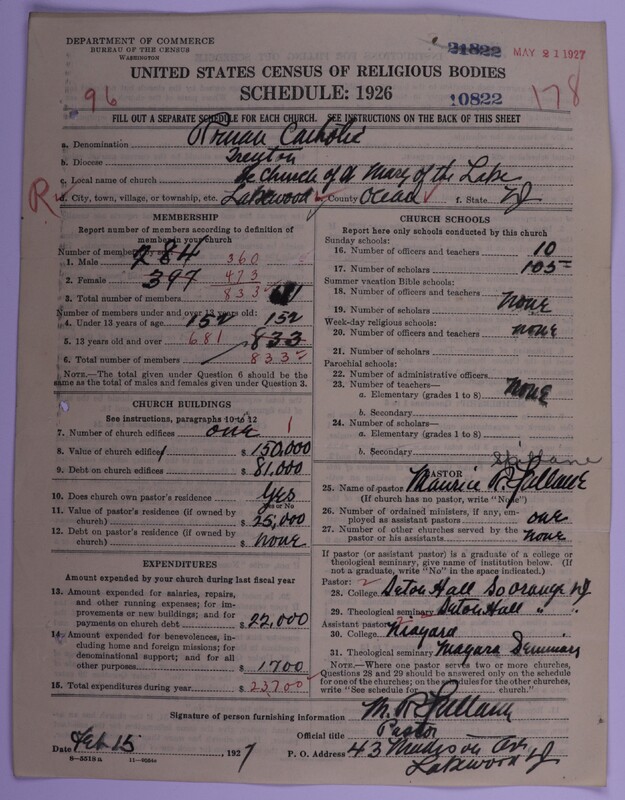 DEPARTMENT OF COMMERCE
BUREAU OF THE CENSUS
WASHINGTON
21822
MAY 21 1927
UNITED STATES CENSUS OF RELIGIOUS BODIES
SCHEDULE: 1926
96
10822
178
FILL OUT A SEPARATE SCHEDULE FOR EACH CHURCH. SEE INSTRUCTIONS ON THE BACK OF THIS SHEET
a. Denomination Roman Catholic
b. Diocese Trenton
c. Local name of church the Church of St Mary of the Lake
R
d. City, town, village, or township, etc. Lakewood County Ocean f. State NJ
MEMBERSHIP
Report number of members according to definition of
member in your church
Number of members by
1. Male 284 360
2. Female 397 473
3. Total number of members 833
Number of members under and over 13 years old:
4. Under 13 years of age 152 152
5. 13 years old and over 681 833
6. Total number of members 833
NOTE.—The total given under Question 6 should be the
same as the total of males and females given under Question 3.
CHURCH BUILDINGS
See instructions, paragraphs 10 to 12
7. Number of church edifices one 1
8. Value of church edifice $ 150,000
9. Debt on church edifices $ 81,000
10. Does church own pastor's residence Yes
Yes or No
11. Value of pastor's residence (if owned by
church) $ 25,000
12. Debt on pastor's residence (if owned by
church) $ none
EXPENDITURES
Amount expended by your church during last fiscal year
13. Amount expended for salaries, repairs,
and other running expenses; for im-
provements or new buildings; and for
payments on church debt $ 22,000
14. Amount expended for benevolences, in-
cluding home and foreign missions; for
denominational support; and for all
other purposes $ 1,700
15. Total expenditures during year $ 23,700
CHURCH SCHOOLS
Report here only schools conducted by this church
Sunday schools:
16. Number of officers and teachers 10
17. Number of scholars 105
Summer vacation Bible schools:
18. Number of officers and teachers
19. Number of scholars none
Week-day religious schools:
20. Number of officers and teachers none
21. Number of scholars
Parochial schools:
22. Number of administrative officers
23. Number of teachers—
a. Elementary (grades 1 to 8) none
b. Secondary
24. Number of scholars—
a. Elementary (grades 1 to 8)
b. Secondary
Spillane
PASTOR
25. Name of pastor Maurice R. Spillane
(If church has no pastor, write "None")
26. Number of ordained ministers, if any, em-
ployed as assistant pastors one
27. Number of other churches served by the
pastor or his assistants none
If pastor (or assistant pastor) is a graduate of a college or
theological seminary, give name of institution below. (If
not a graduate, write "No" in the space indicated.)
Pastor: 2
28. College Seton Hall So Orange NJ
29. Theological seminary Seton Hall " "
Assistant pastor:
30. College Niagara
31. Theological seminary Niagara Seminary
NOTE.—Where one pastor serves two or more churches,
Questions 28 and 29 should be answered only on the schedule
for one of the churches; on the schedules for the other churches,
write "See schedule for church."
Signature of person furnishing information M. R. Spillane
Official title Pastor
Date Feb 15, 1927
P. O. Address 43 Madison Av
Lakewood NJ
8—5519 a